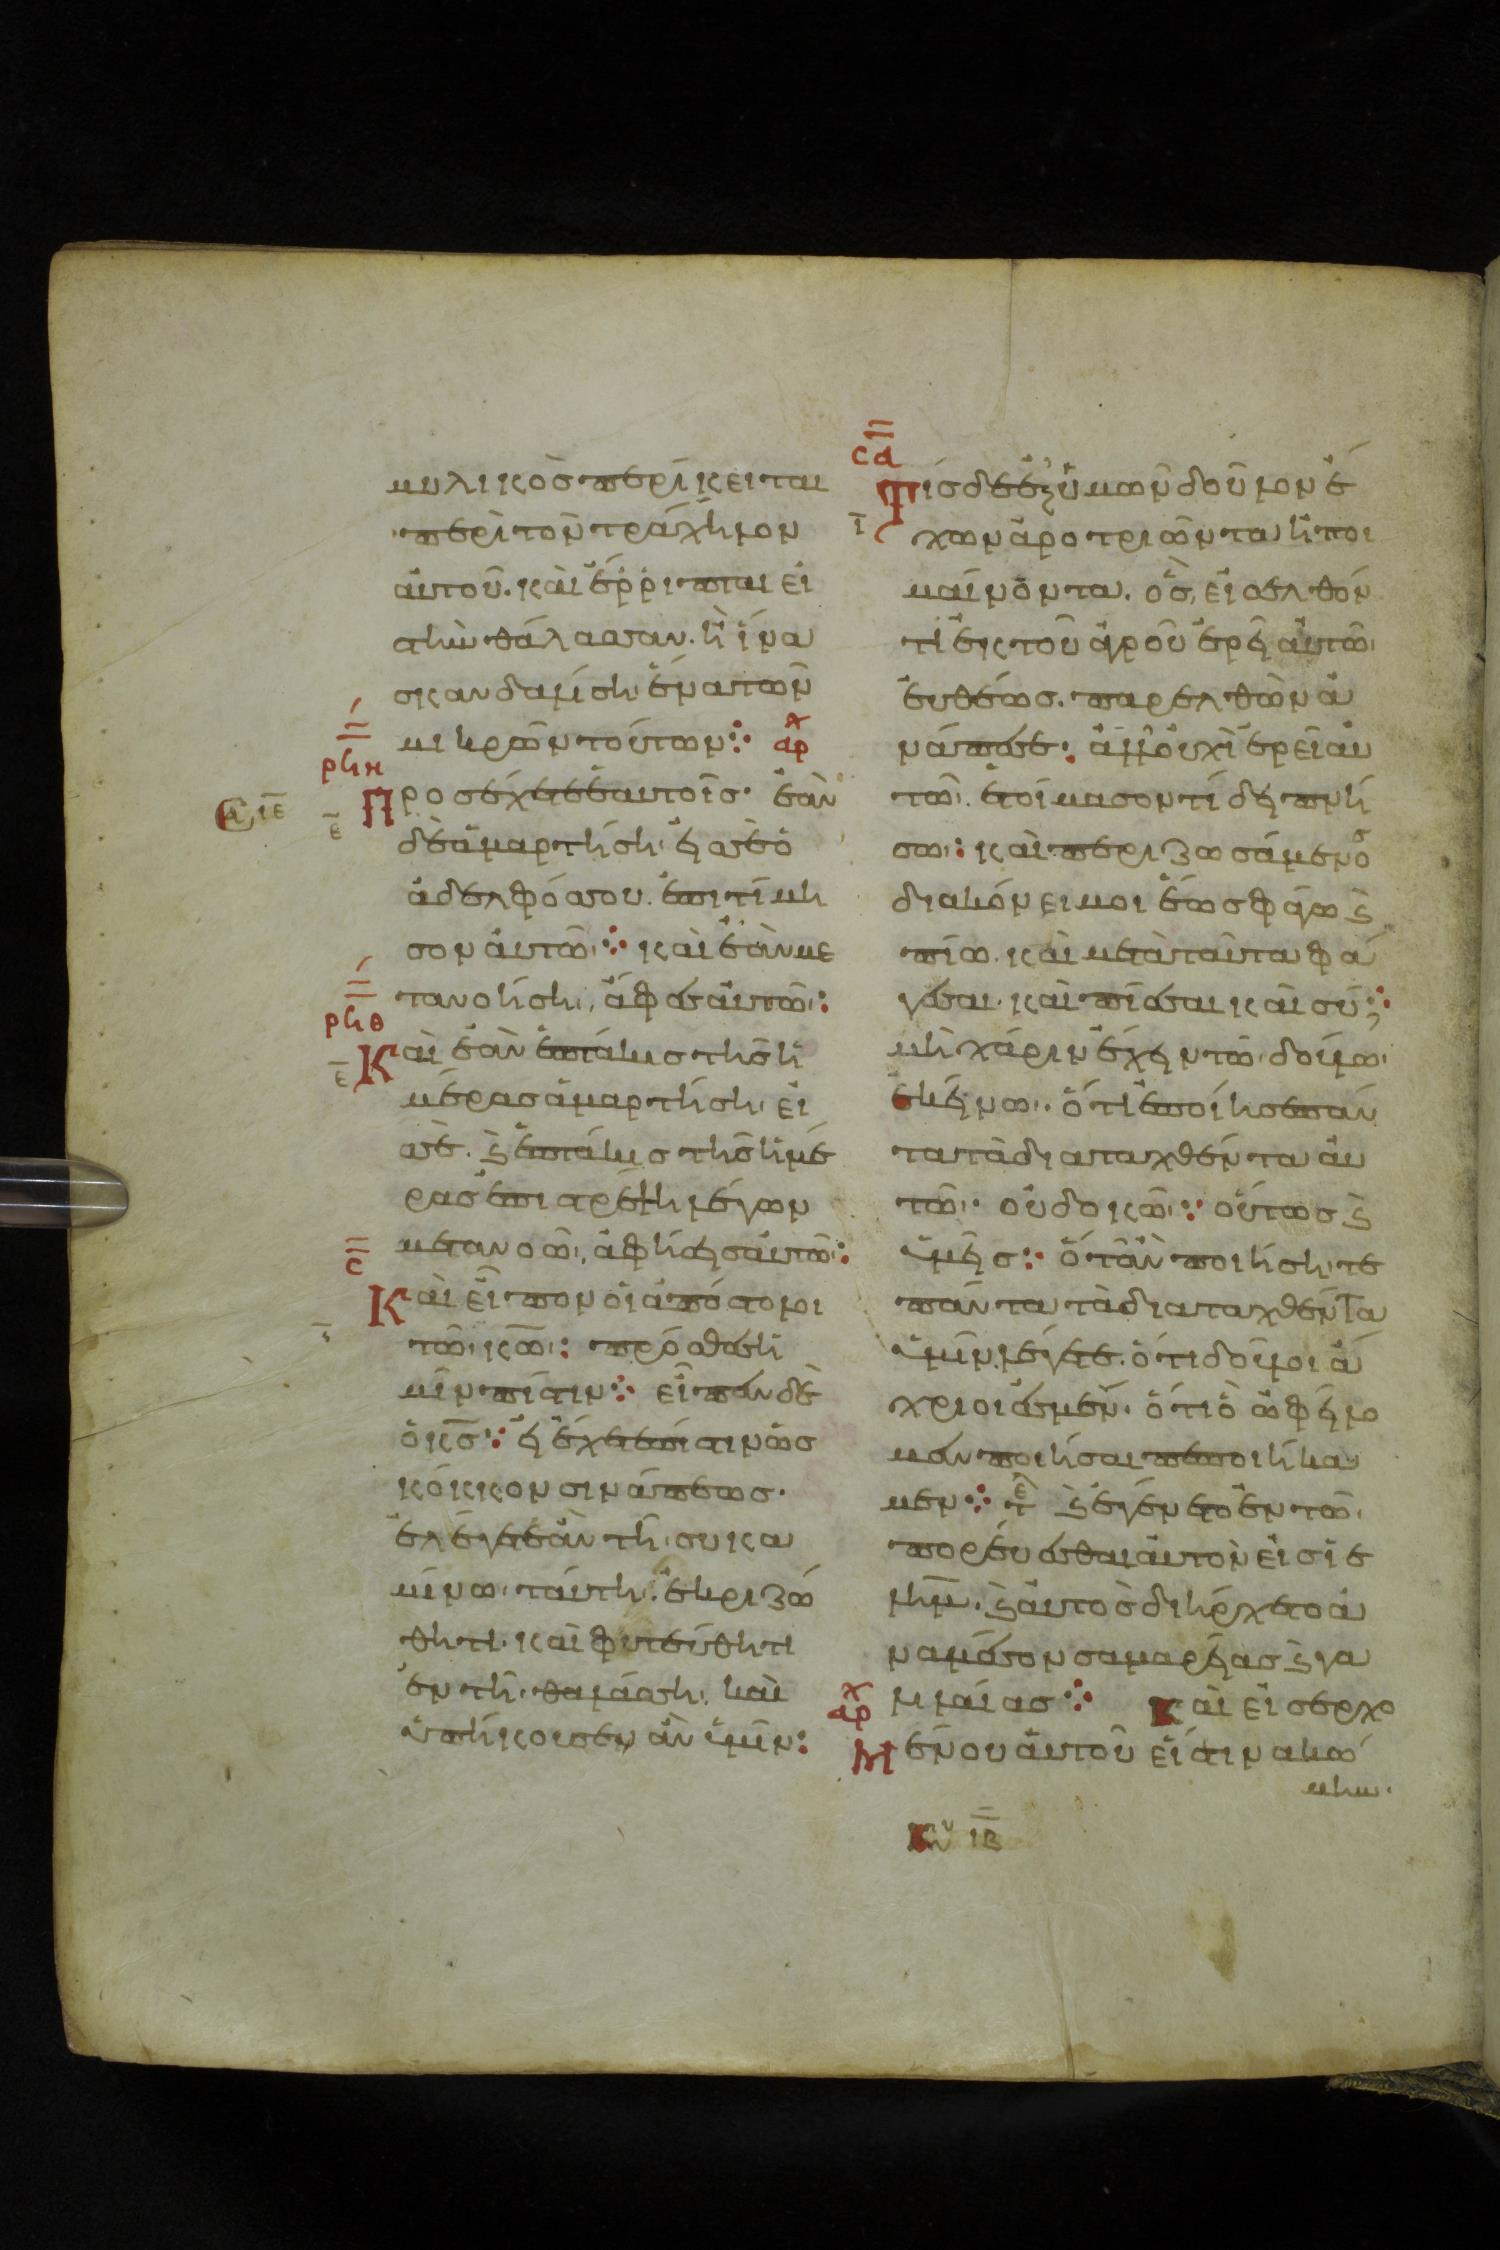 μυλικὸσ περίκειται
περὶ τὸν τράχηλον
αὐτοῦ. καὶ ἔρριπται εἰ
σ τὴν θάλασσαν. ἢ ἵνα
σκανδαλίση ἕνα τῶν
μικρῶν τούτων:· ἀρχ
ρϟη
Προσέχετε ἑαυτοῖσ· ἐὰν
ιε
ε
δὲ ἁμαρτήση εἰσ σὲ ὁ
ἀδελφόσ σου. ἐπιτίμη
σον αὐτῶ:· καὶ ἐὰν με
τανοήση, ἄφεσ αὐτῶ:
ρϟθ
Καὶ ἐὰν ἑπτάκισ τῆσ ἡ
ε
μέρασ ἁμαρτήση εἰ
σ σὲ. καὶ ἑπτάκισ τῆσ ἡμέ
ρασ ἐπιστρέψη λέγων
μετανοῶ, ἀφήσεισ αὐτῶ:
σ
Καὶ εἶπον οἱ ἀπόστολοι
τῶ κω: πρόσθεσ ἡ
μῖν πίστιν:· εἶπεν δὲ
ὁ κσ:· εἰ ἔχετε πίστιν ὡσ
κόκκον σινάπεωσ·
ἐλέγετε ἂν τῆ συκα
μίνω ταύτη. ἐκριζώ
θητι. καὶ φυτεύθητι
ἐν τῆ θαλάσση. καὶ
ὑπήκουσεν ἂν ὑμῖν:
σα
Τίσ δὲ ἐξ ὑμῶν δοῦλον ἔ
ι
χων ἀροτριῶντα ἢ ποι
μαίνοντα. ὃσ, εἰσελθόν
τι ἐκ τοῦ ἀγροῦ ἐρεῖ αὐτῶ
εὐθέωσ. παρελθὼν ἀ
νάπεσε: ἀλλ' οὐχὶ ἐρεῖ αὐ
τῶ. ἑτοίμασον τί δειπνή
σω: καὶ περιζωσάμενοσ
διακόνει μοι ἕωσ φάγω καὶ
πίω. καὶ μετὰ ταῦτα φά
γεσαι. καὶ πίεσαι καὶ σύ;
μὴ χάριν ἔχει τῶ δούλω
ἐκείνω. ὅτι ἐποίησε πάν
τα τὰ διαταχθέντα αὐ
τῶ. οὐ δοκῶ:· οὕτωσ καὶ
ὑμεῖσ:· ὅταν ποιήσητε
πάντα τὰ διαταχθέντα
ὑμῖν λέγετε. ὅτι δοῦλοι ἀ
χρεῖοι ἐσμέν. ὅτι ὃ ὠφείλο
μεν ποιῆσαι πεποιήκα
μεν:· τε καὶ ἐγένετο ἐν τῶ
πορεύεσθαι αὐτὸν εἰσ ἱε
λημ. καὶ αὐτὸσ διήρχετο ἀ
ναμέσον σαμαρείασ καὶ γα
ἀρχ λιλαίασ:· καὶ εἰσερχο
Μένου αὐτοῦ εἴσ τινα κώ
μην.
ιβ